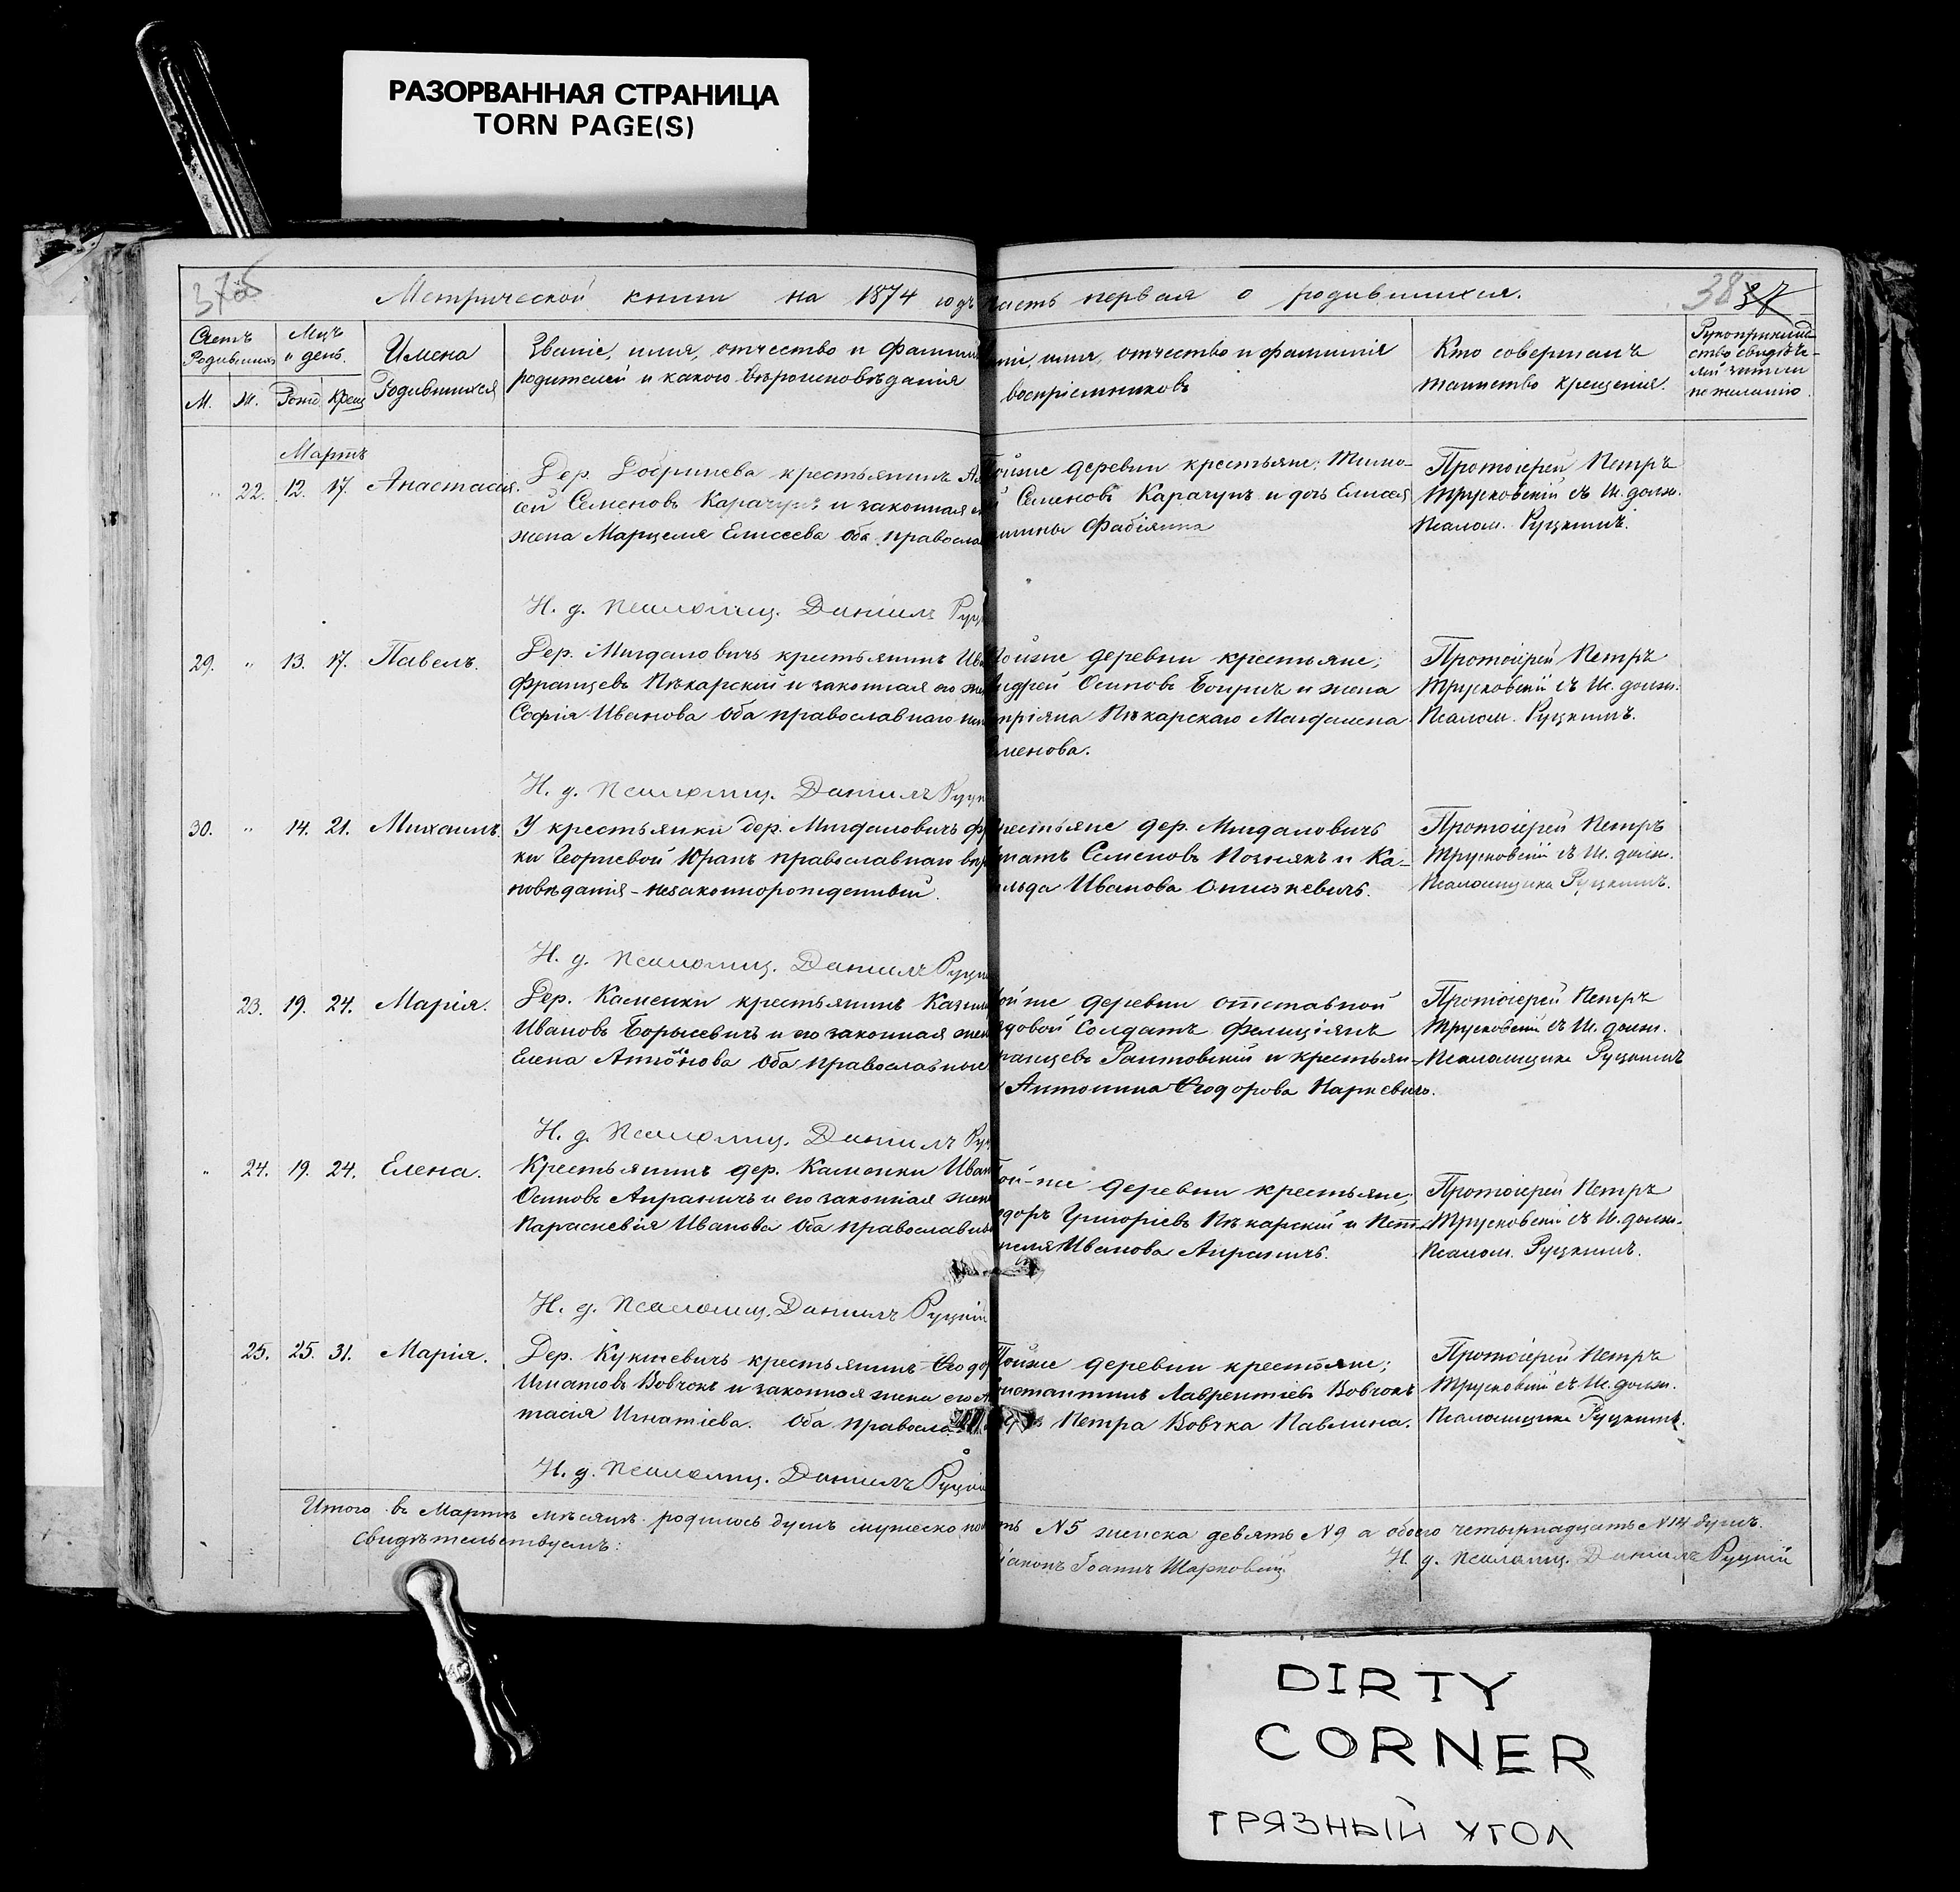 РАЗОРВАННАЯ СТРАНИЦА
TORN PAGE(S)
Метрической книги на 1874 годъ
часть первая о родившихся.
38
Счетъ Родившихся
М. Ж.
Мцъ и день.
Рожд. Крещ
Имена Родившихся
Званіе, имя, отчество и фамилі
родителей и какого вѣроисповѣданія
ніе, имя, отчество и фамилія
воспріемниковъ
Кто совершалъ
таинство крещенія.
Рукоприклад
ство свидѣте-
лей записи
по желанію.
Мартъ
" 22. 12. 17. Анастасія.
Дер. Добринева крестьянинъ Ал
ей Семеновъ Карачунъ и законная
жена Марцеля Елисеева оба правосла
Тойже деревни крестьяне: Тимо-
й Семеновъ Карачунъ и дочь Елисея
Фабіянна
Протоіерей Петръ
Трусковскій съ И. долж.
Псалом. Руцкимъ.
И. д. Псаломщ. Даніилъ Руц
29. " 13. 17. Павелъ.
Дер. Мигдаловичъ крестьянинъ Ива
Францевъ Пѣкарскій и законная его же
Софія Иванова оба православнаго
Тойже деревни крестьяне;
Андрей Осиповъ Боприч и жена
пріяна Пѣкарскаго Магдалена
менова.
Протоіерей Петръ
Трусковскій съ И. долж.
Псалом. Руцкимъ.
И. д. Псаломщ. Даніилъ Руцк
30. " 14. 21. Михаилъ.
У крестьянки дер. Мигдаловичъ
ки Георгіевой Юранъ православнаго вѣр
повѣданія – незаконнорожденный.
рестьяне дер. Мигдаловичъ
гнатъ Семеновъ Познякъ и Ка-
ильда Иванова Онишкевичъ.
Протоіерей Петръ
Трусковскій съ И. долж.
Псаломщика Руцкимъ.
И. д. Псаломщ. Даніилъ Руцк
23. 19. 24. Марія.
Дер. Каменки крестьянинъ Казим
Ивановъ Борысевичъ и его законная жен
Елена Антонова оба православные
ойже деревни отставной
ядовой Солдатъ Фелиціянъ
ранцевъ Раптовскій и крестьян-
Антонина Ѳеодорова Наркевичъ.
Протоіерей Петръ
Трусковскій съ И. долж.
Псаломщика Руцкимъ
И. д. Псаломщ. Даніилъ Руц
" 24. 19. 24. Елена.
Крестьянинъ дер. Каменки Иван
Осиповъ Апраничъ и его законная жен
Параскевія Иванова оба православн
ой-же деревни крестьяне;
одоръ Григоріевъ Пѣкарскій и Пет-
неля Иванова Апраничъ.
Протоіерей Петръ
Трусковскій съ И. долж.
Псалом. Руцкимъ.
И. д. Псаломщ. Даніилъ Руцкій
25. 25. 31. Марія.
Дер. Кукшевичъ крестьянинъ Ѳеодо
Игнатовъ Вовчокъ и законная жена его А
тасія Игнатіева. Оба правосла
Тойже деревни крестьяне;
нстантинъ Лаврентіевъ Вовчокъ
Петра Вовчка Павлина.
Протоіерей Петръ
Трусковскій съ И. долж.
Псаломщика Руцкимъ.
И. д. Псаломщ. Даніилъ Руцкі
Итого въ Мартѣ мѣсяцѣ родилось душъ мужеска пол
ть №5 женска девять №9 а обоего четырнадцать №14 душъ.
Свидѣтельствуемъ:
іаконъ Іоаннъ Шарковскій
И. д. Псаломщ. Даніилъ Руцкій
DIRTY
CORNER
ГРЯЗНЫЙ УГОЛ